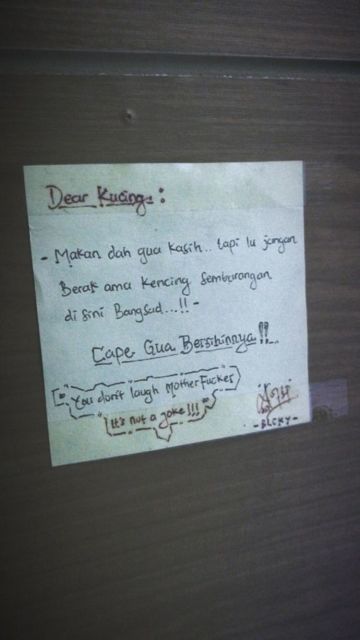 Dear Kucing :
- Makan dah gua kasih.. tapi lu jangan
Berak ama kencing Sembarangan
disini Bangsad...!! -
Cape Gua Bersihinnya !!
"You don't laugh MotherFucker
It's not a joke!!!"